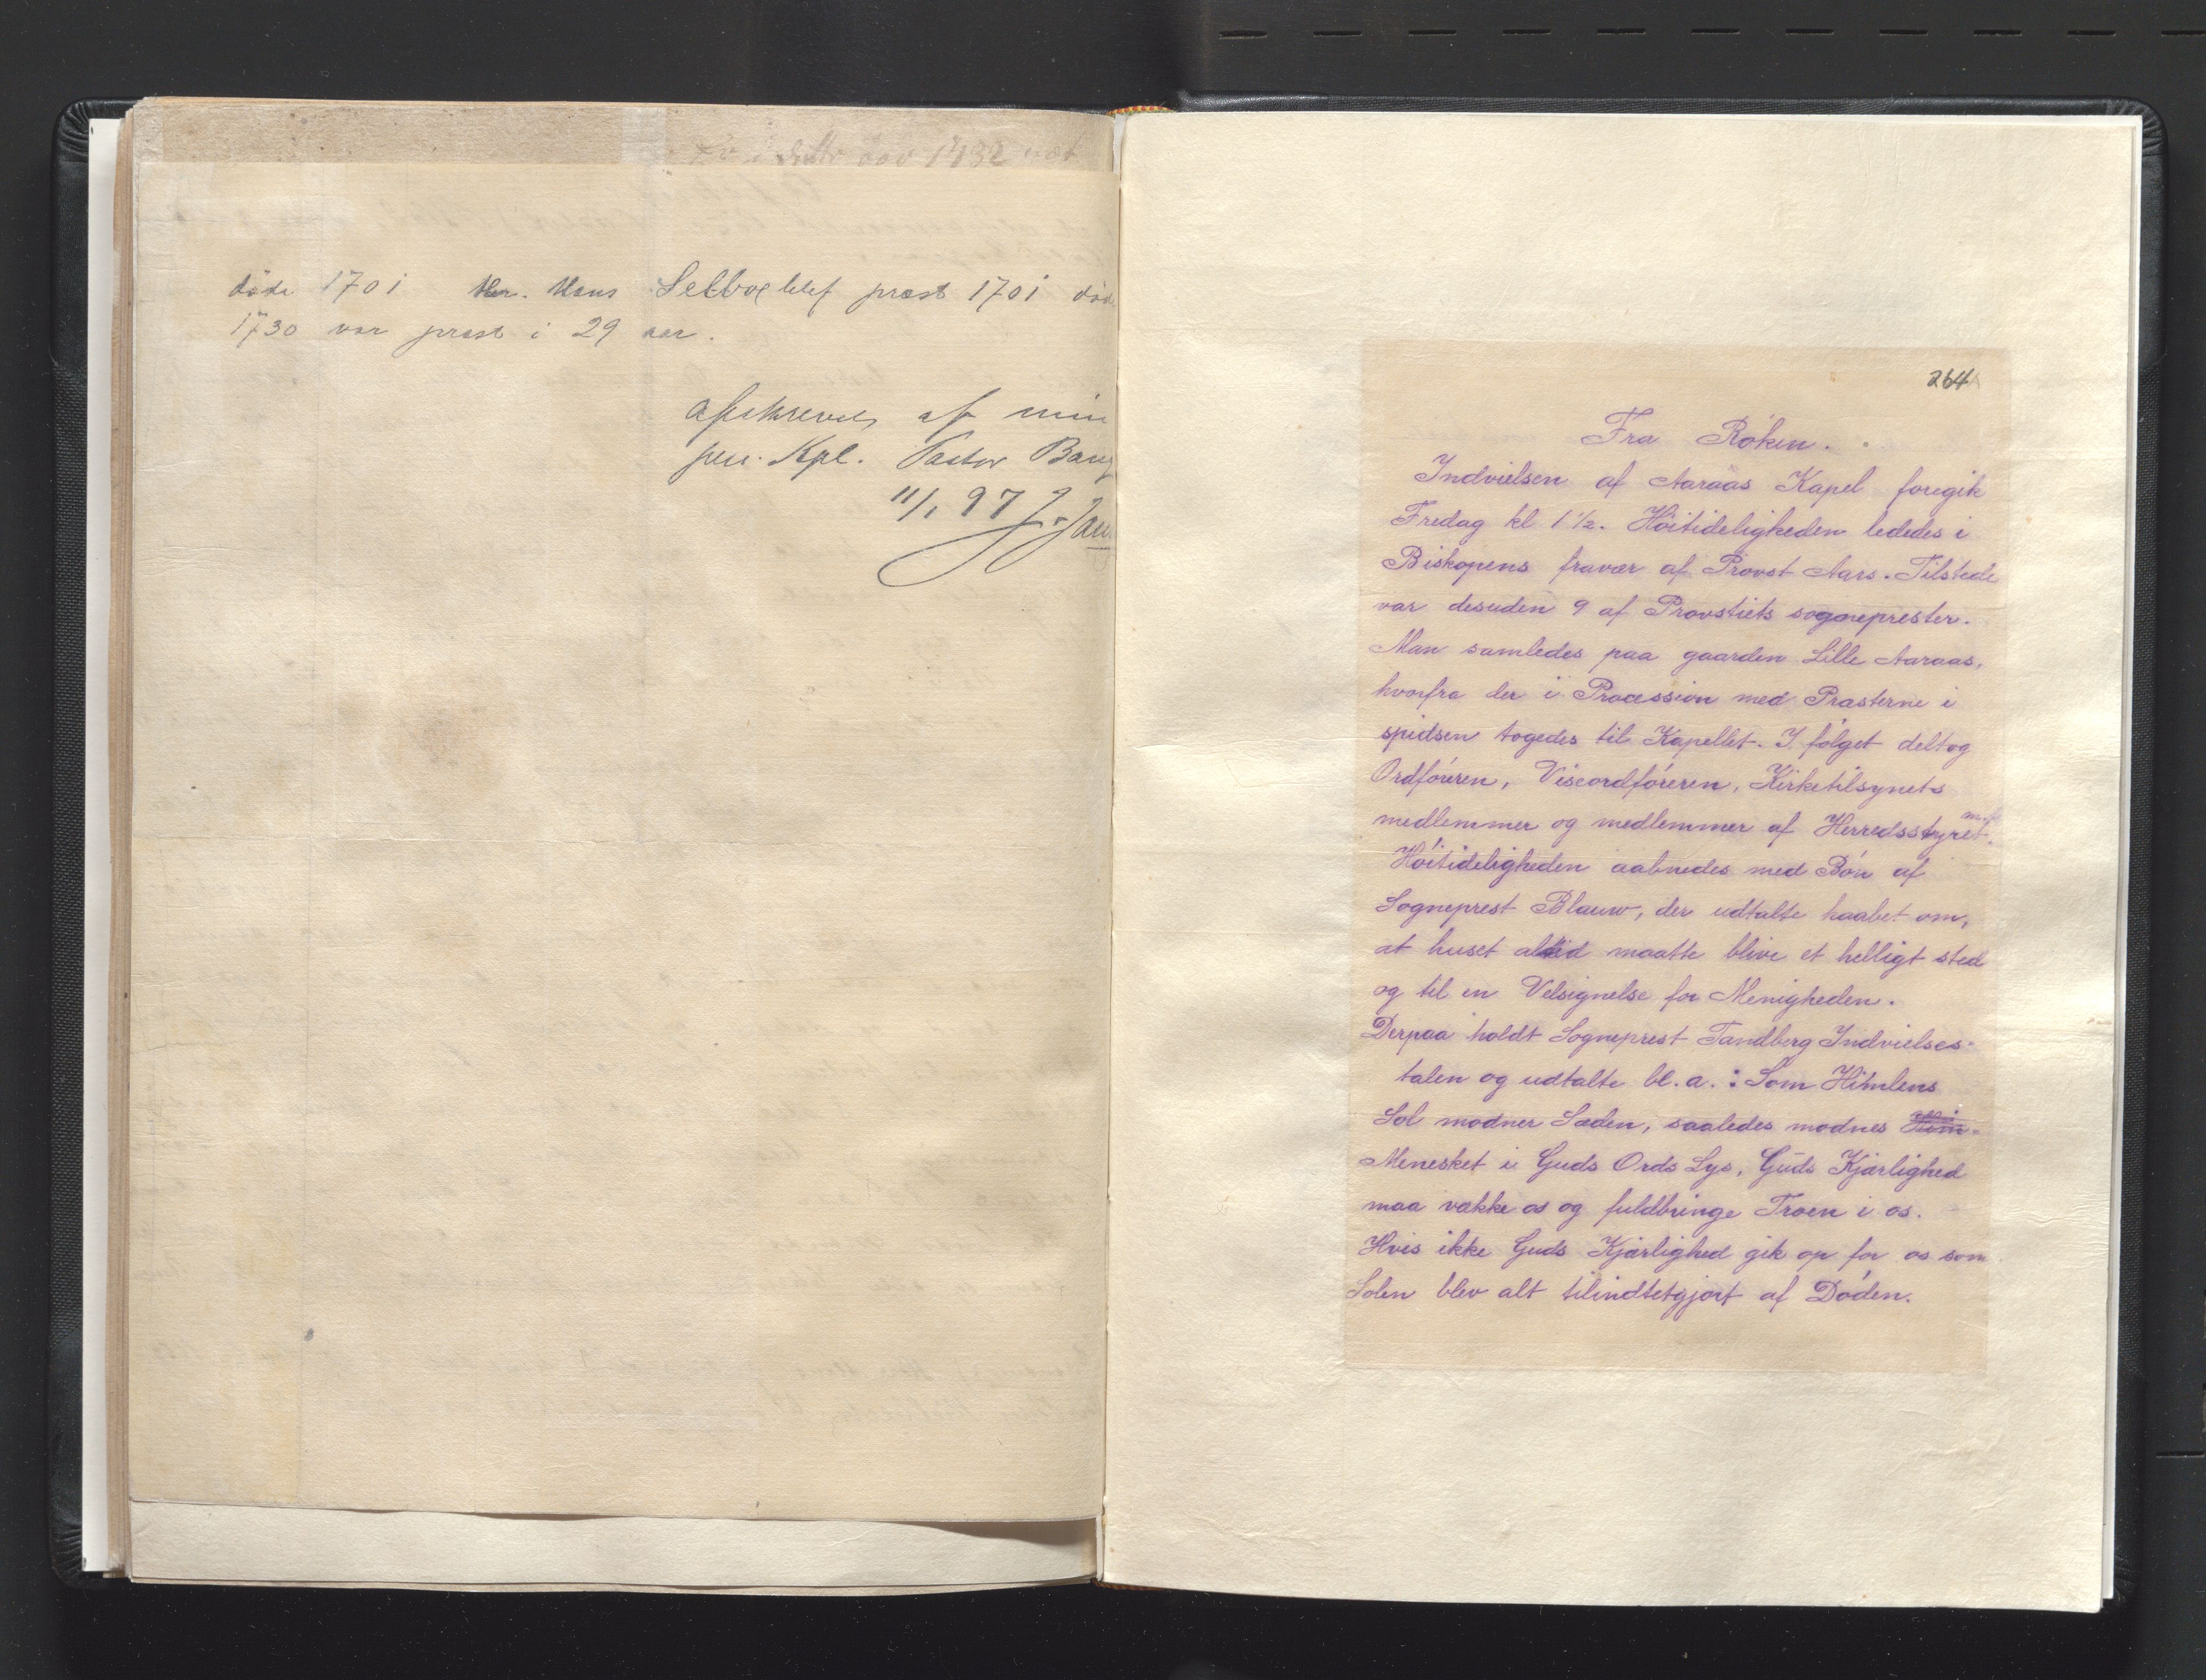 døde 1701 Hr. Hans blef præst 1701 død
1730 var præst i 29 aar.
afskrevet af min
pers. Kpl. Pastor Bang
11/1 97 J. Jan
264
Fra Røken.
Indvielsen af Aaraas Kapel foregik
Fredag kl 1 1/2. Høitideligheden lededes i
Biskopens fravær af Provst Aars. Tilstede
var desuden 9 af Provstiets sogneprester.
Man samledes paa gaarden Lille Aaraas,
hvorfra der i Procession med Præsterne i
spidsen togedes til Kapellet. I følget deltog
Ordføreren, Viseordføreren, Kirketilsynets
medlemmer og medlemmer af Herredsstyret m.fl.
Høitideligheden aabnedes med Bøn af
Sogneprest Blauw, der udtalte haabet om,
at huset altid maatte blive et helligt sted
og til en Velsignelse for Menigheden.
Derpaa holdt Sogneprest Tandberg Indvielses-
talen og udtalte bl. a. : Som Himlens
Sol modner Sæden, saaledes modnes Him-
Menesket i Guds Ords Lys, Guds Kjærlighed
maa vække os og fuldbringe Troen i os.
Hvis ikke Guds Kjærlighed gik op for os som
Solen blev alt tilindtetgjort af Døden.